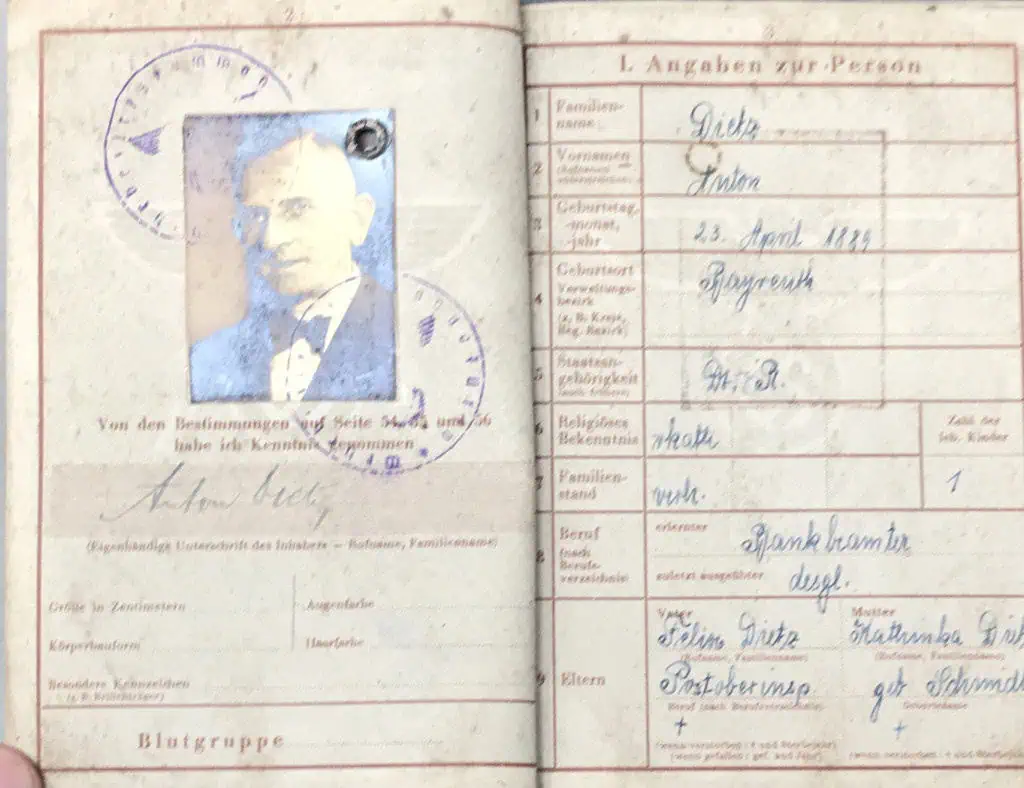 2
Von den Bestimmungen auf Seite 54, 55 und 56
habe ich Kenntnis genommen
Anton Dietz
(Eigenhändige Unterschrift des Inhabers — Rufname, Familienname)
Größe in Zentimetern
Augenfarbe
Körperbauform
Haarfarbe
Besondere Kennzeichen
(z. B. Brillenträger)
Blutgruppe
3
I. Angaben zur Person
1 Familien-
name
Dietz
2 Vornamen
Anton
3 Geburtstag,
-monat,
-jahr
23. April 1889
4 Geburtsort
Verwaltungs-
bezirk
(z. B. Kreis,
Reg. Bezirk)
Bayreuth
5 Staatsan-
gehörigkeit
(auch frühere)
Dt. R.
6 Religiöses
Bekenntnis
rkath
Zahl der
leb. Kinder
7 Familien-
stand
verh.
1
8 Beruf
(nach
Berufs-
verzeichnis)
erlernter
Bankbeamter
zuletzt ausgeführter
desgl.
9 Eltern
Vater
Felix Dietz
(Rufname, Familienname)
Postoberinsp.
Beruf (nach Berufsverzeichnis)
+
(wenn verstorben: † und Sterbejahr)
(wenn gefallen: gef. und Jahr)
Mutter
Kathinka
(Rufname, Familienname)
geb Schmidt
Geburtsname
+
(wenn verstorben: † und Sterbejahr)